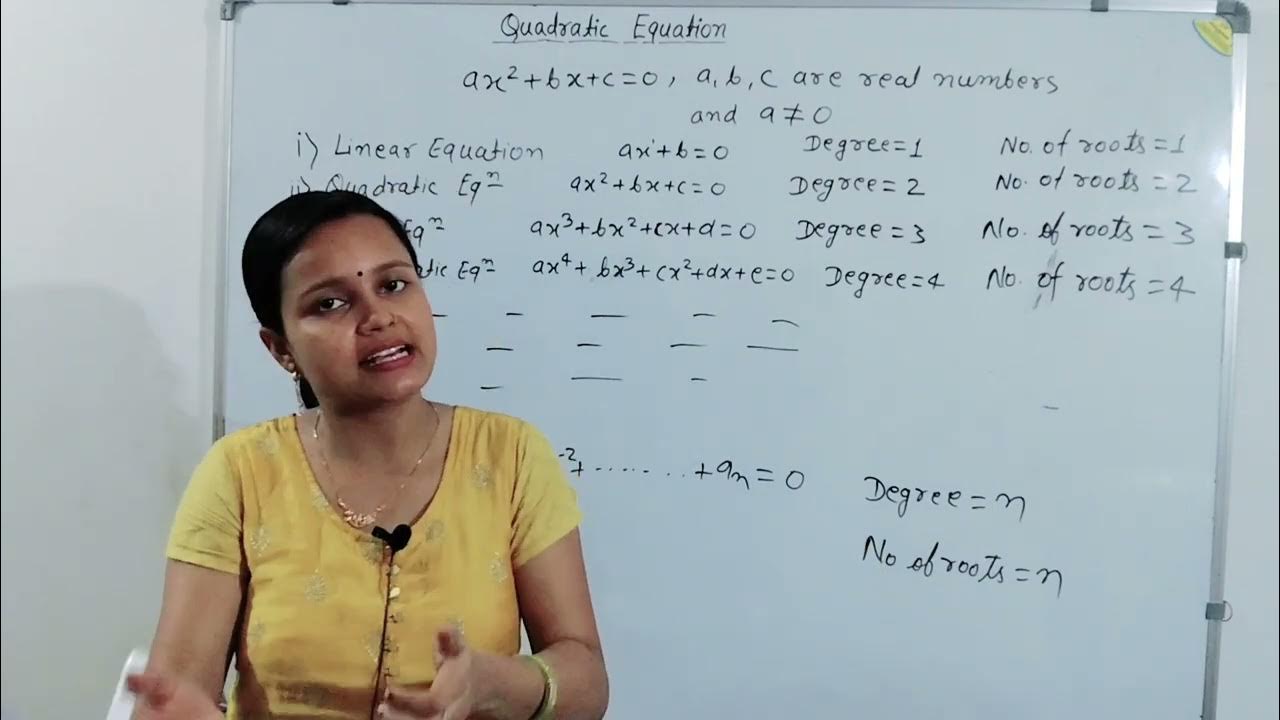 Quadratic Equation
ax²+bx+c=0, a, b, c are real numbers
and a≠0
i) Linear Equation ax¹+b=0 Degree=1 No. of roots=1
ii) Quadratic Eqⁿ ax²+bx+c=0 Degree=2 No. of roots=2
Eqⁿ ax³+bx²+cx+d=0 Degree=3 No. of roots=3
Eqⁿ ax⁴+bx³+cx²+dx+e=0 Degree=4 No. of roots=4
⁻²+.......+aₙ=0 Degree=n
No of roots=n